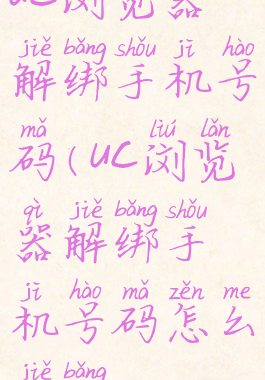 uc浏览器
jiě bǎng shǒu jī hào
解绑手机号
mǎ liú lǎn
码(uc浏览
qì jiě bǎng shǒu
器解绑手
jī hào mǎ zěn me
机号码怎么
jiě bǎng